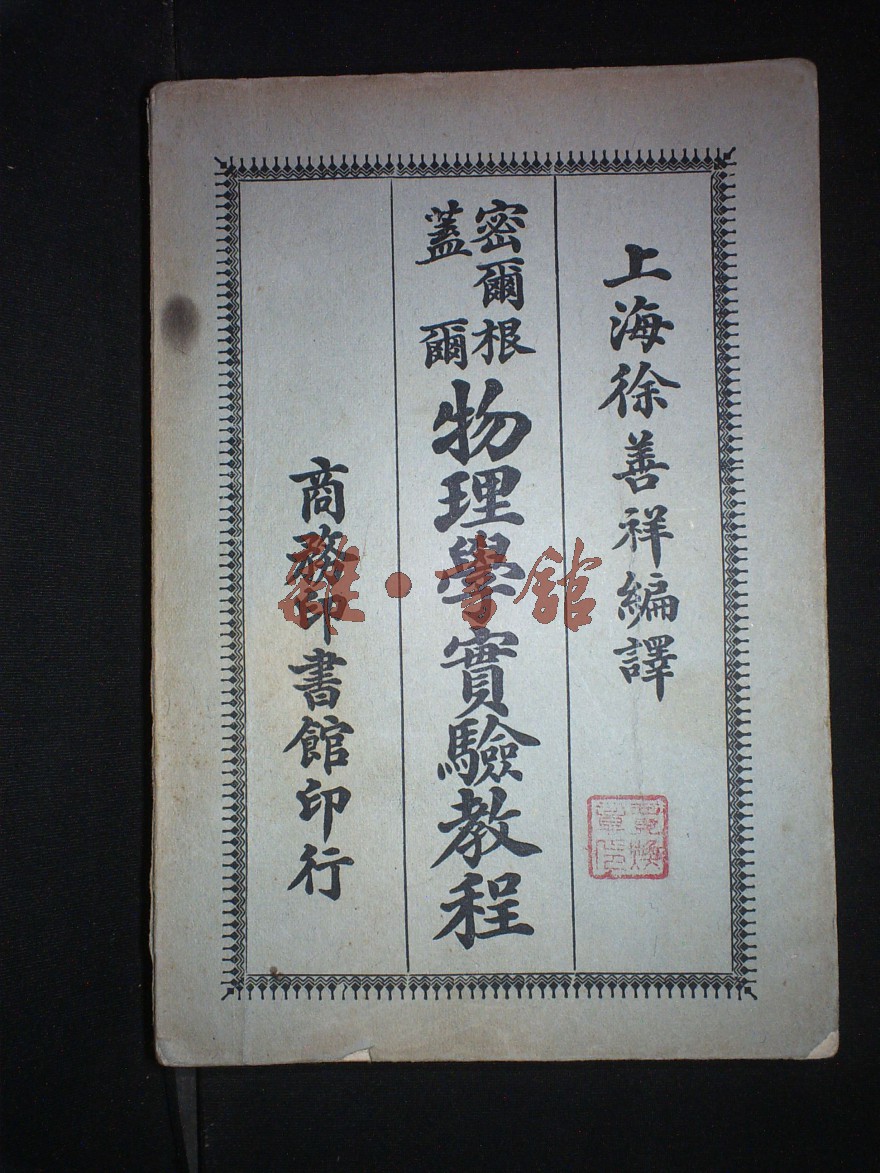 上海徐善祥編譯
密爾根
蓋爾
物理學實驗教程
商務印書館印行